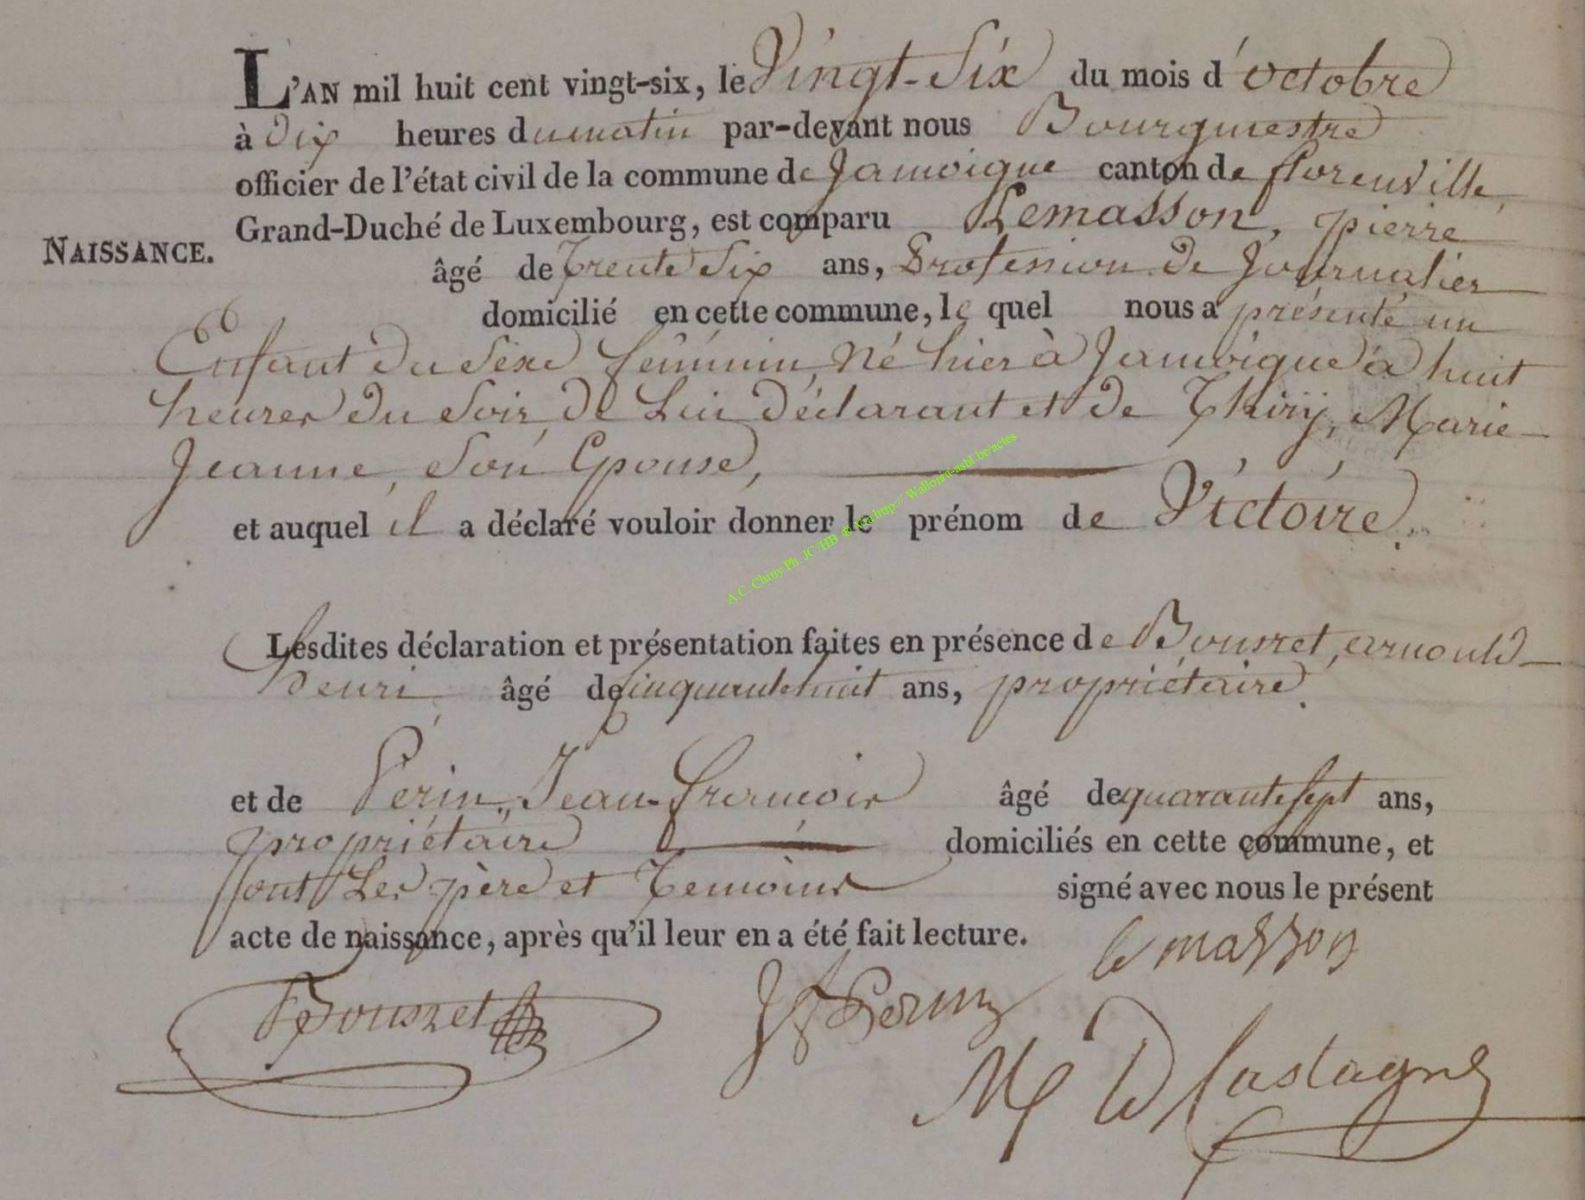 L'AN mil huit cent vingt-six, le Vingt-Six du mois d'octobre
à dix heures du matin par-devant nous Bourgmestre
officier de l'état civil de la commune de Jamoigne canton de florenville,
Grand-Duché de Luxembourg, est comparu Lemasson, pierre
NAISSANCE.
âgé de Trente Six ans, Profession de Journalier
domicilié en cette commune, le quel nous a présenté un
Enfant du Sexe féminin, Né hier à Jamoigne à huit
heures du Soir, de Lui déclarant et de Thiry, Marie
Jeanne, Son Epouse,
et auquel il a déclaré vouloir donner le prénom de Victoire.
A.C. Chiny Ph. JC/HB & via http:// Wallonia-asbl.be/actes
Lesdites déclaration et présentation faites en présence de arnould
henri âgé de cinquante huit ans, propriétaire.
et de Périn, Jean-françois âgé de quarante sept ans,
propriétaire domiciliés en cette commune, et
ont Les père et Temoins signé avec nous le présent
acte de naissance, après qu'il leur en a été fait lecture.
le masson